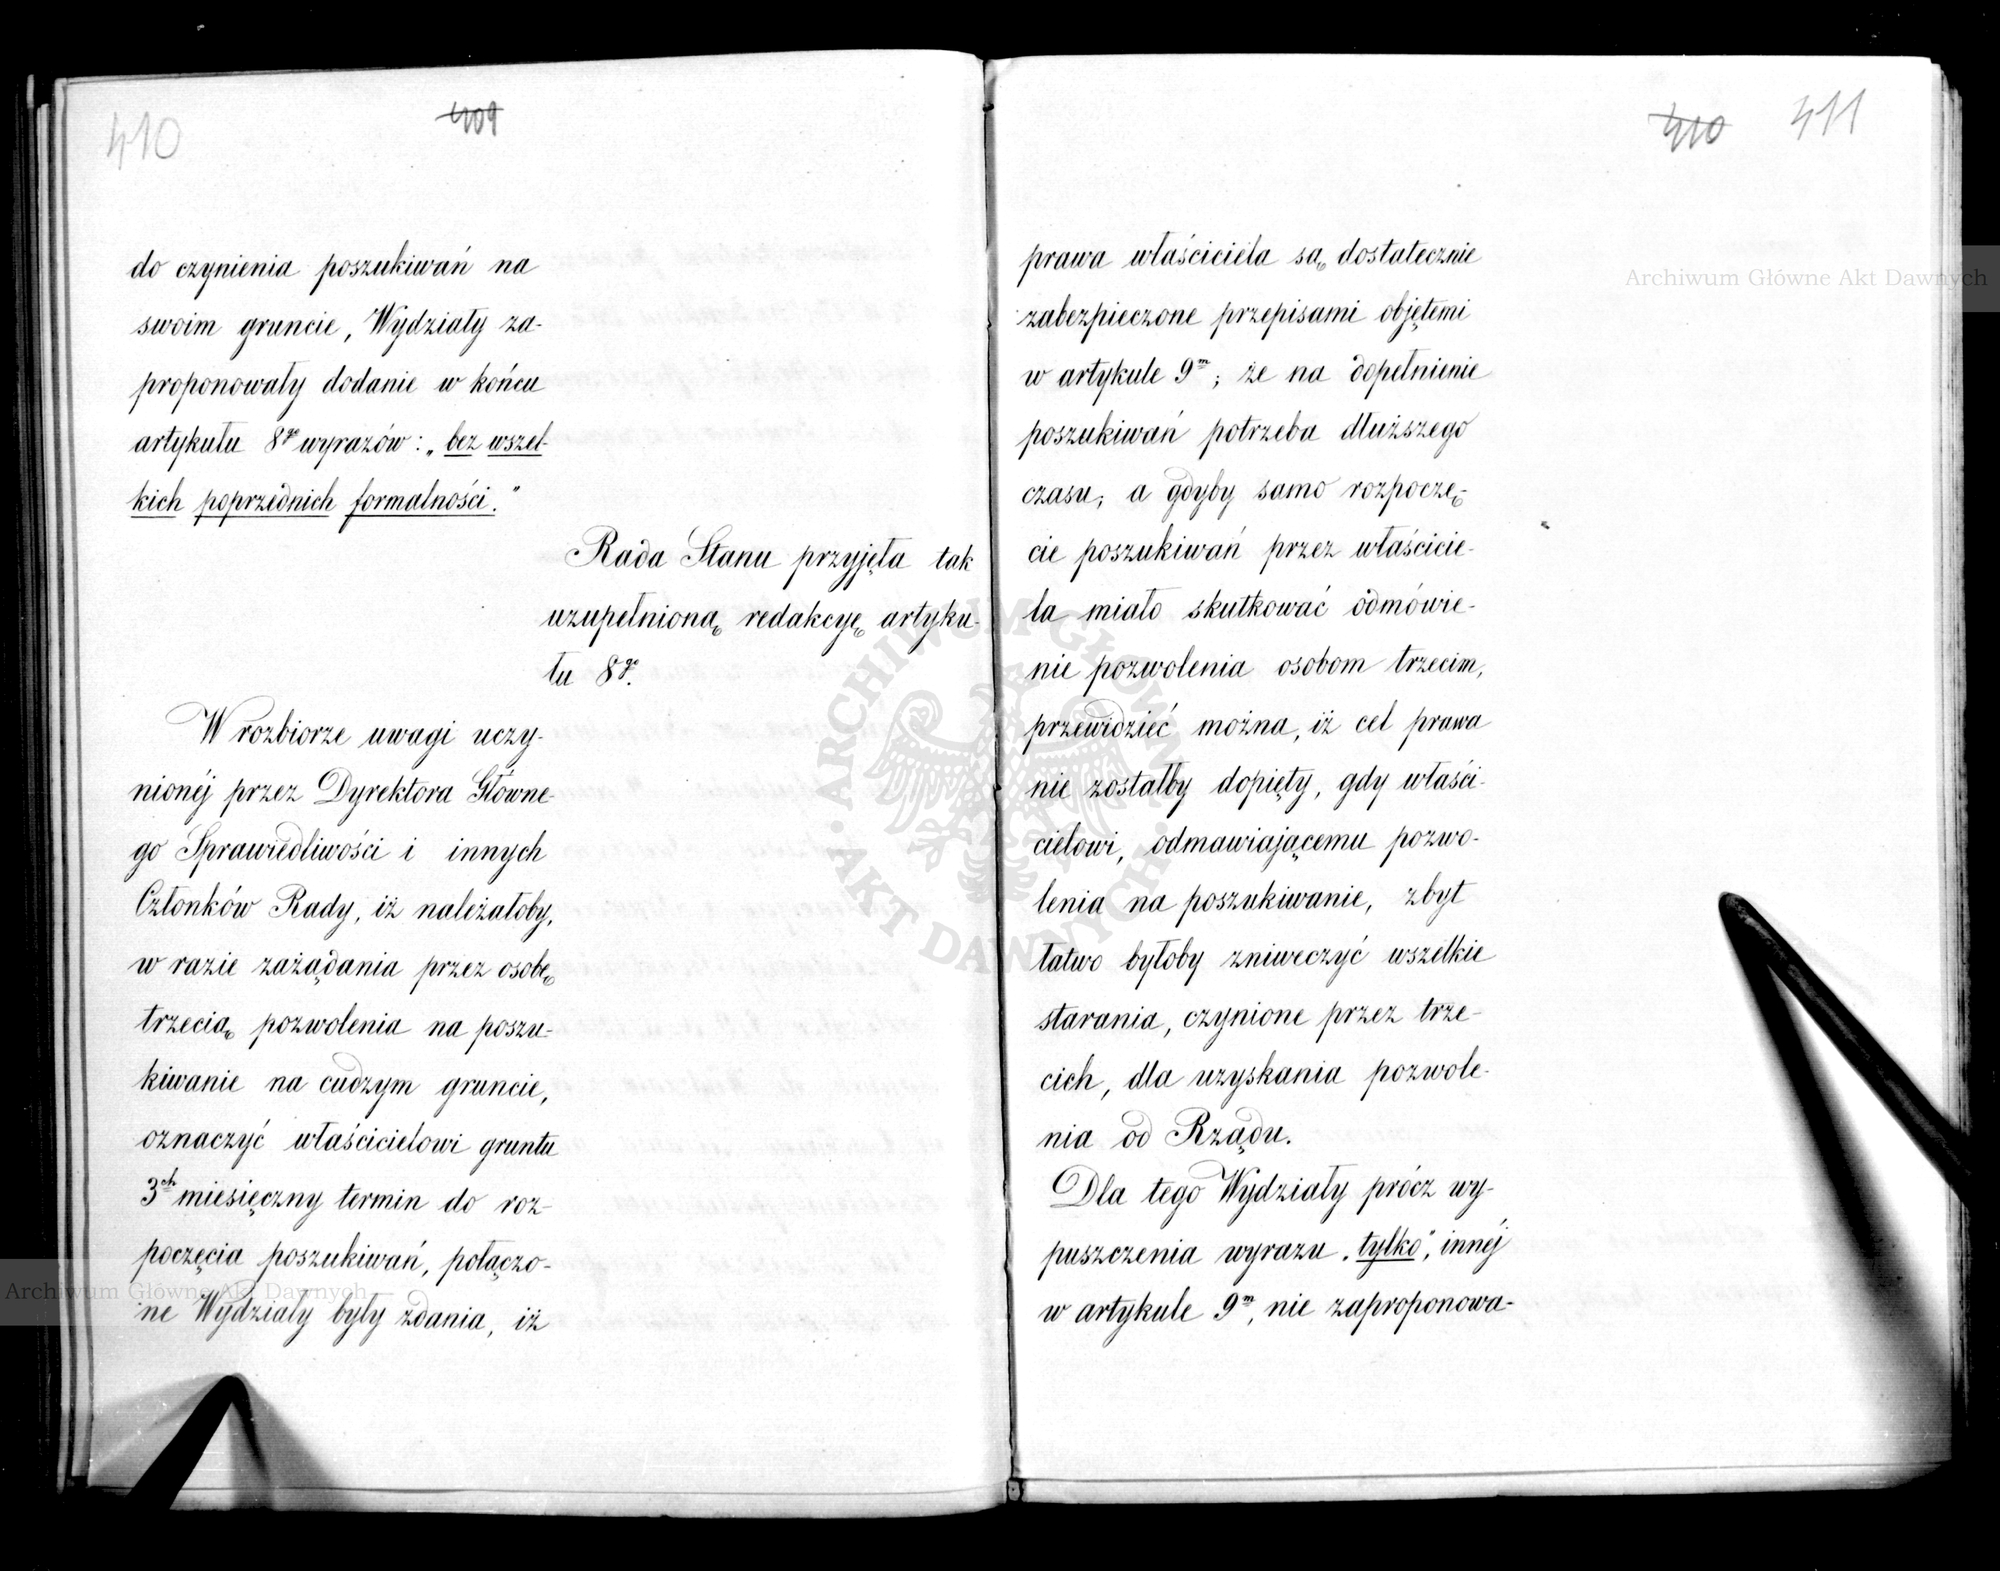 410
409
do czynienia poszukiwań na
swoim gruncie, Wydziały za-
proponowały dodanie w końcu
artykułu 8go wyrazów: „bez wszel-
kich poprzednich formalności."
Rada Stanu przyjęła tak
uzupełnioną redakcyę artyku-
łu 8go.
W rozbiorze uwagi uczy-
nionéj przez Dyrektora Główne-
go Sprawiedliwości i innych
Członków Rady, iż należałoby,
w razie zażądania przez osobę
trzecią pozwolenia na poszu-
kiwanie na cudzym gruncie,
oznaczyć właścicielowi gruntu
3ch miesięczny termin do roz-
poczęcia poszukiwań, połączo-
ne Wydziały były zdania, iż
410
411
prawa właściciela są dostatecznie
zabezpieczone przepisami objętemi
w artykule 9m; że na dopełnienie
poszukiwań potrzeba dłuższego
czasu; a gdyby samo rozpoczę-
cie poszukiwań przez właścicie-
la miało skutkować odmówie-
nie pozwolenia osobom trzecim,
przewidzieć można, iż cel prawa
nie zostałby dopięty, gdy właści-
cielowi, odmawiającemu pozwo-
lenia na poszukiwanie, zbyt
łatwo byłoby zniweczyć wszelkie
starania, czynione przez trze-
cich, dla uzyskania pozwole-
nia od Rządu.
Dla tego Wydziały prócz wy-
puszczenia wyrazu „tylko", innéj
w artykule 9m, nie zaproponowa-
Archiwum Główne Akt Dawnych
Archiwum Główne Akt Dawnych
ARCHIWUM GŁÓWNE AKT DAWNYCH